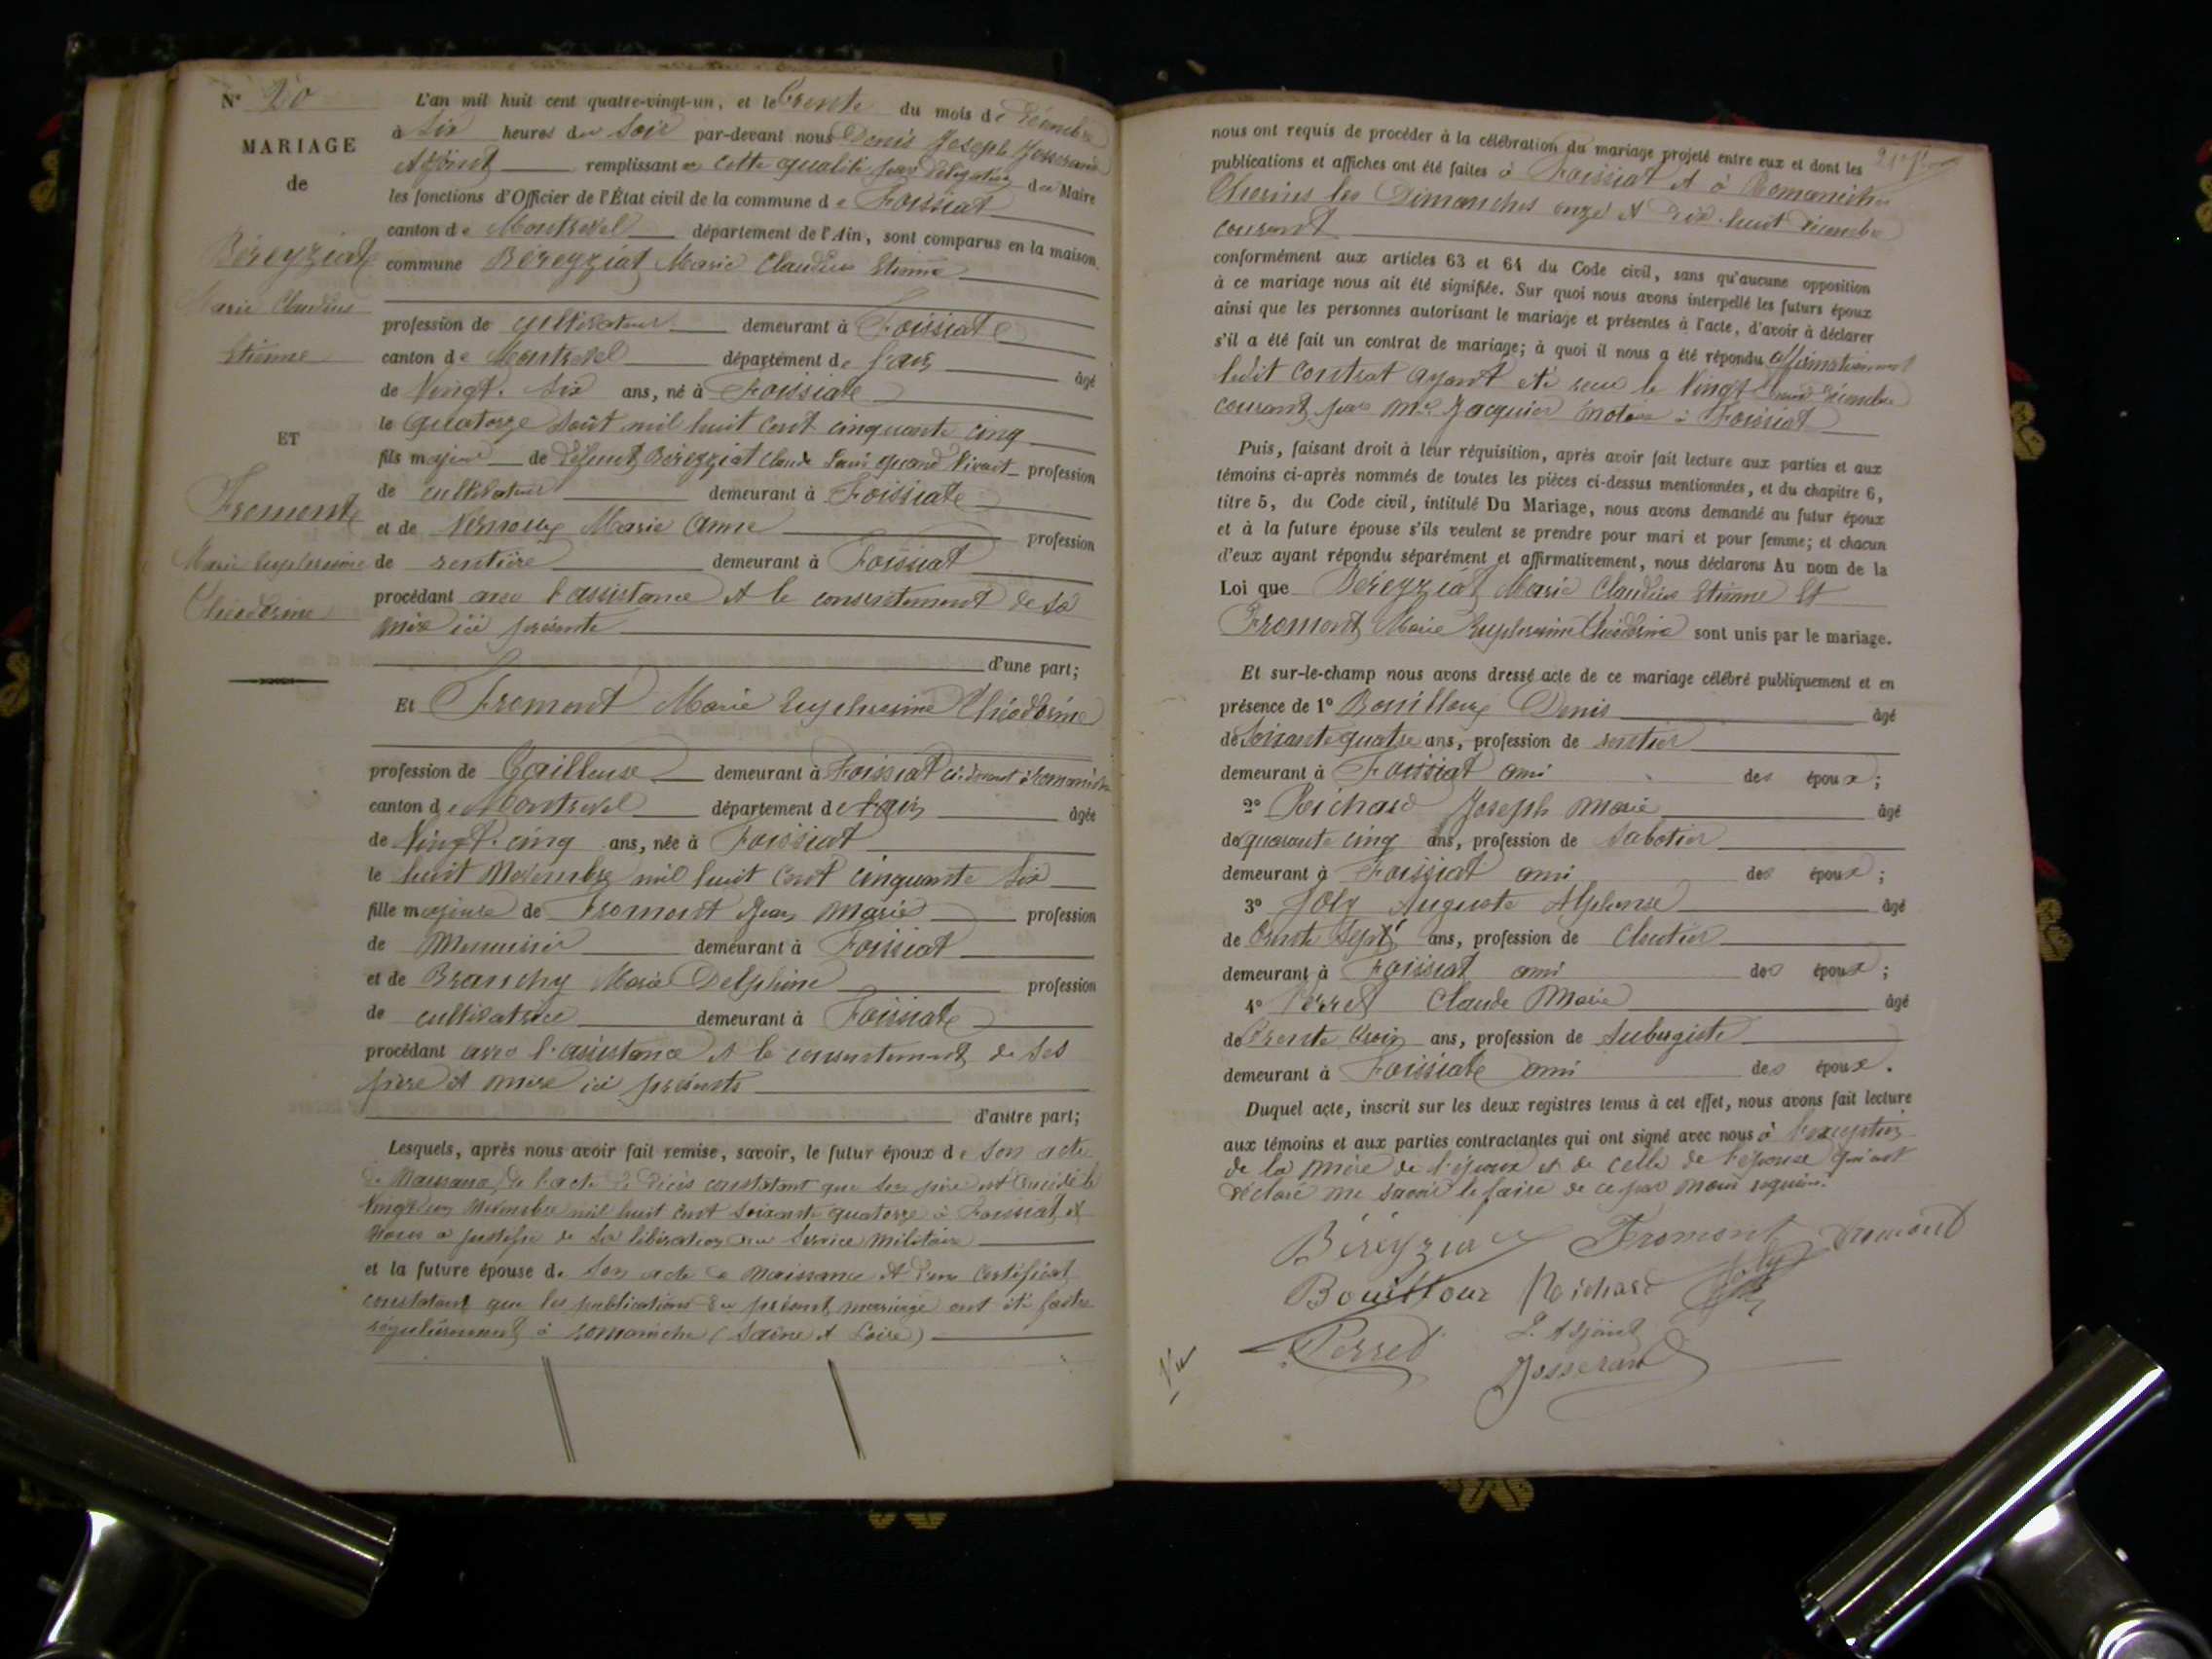 N° 20
MARIAGE
de
Béreyziat
Marie Claudius
Etienne
ET
Fromont
Marie Euphrosine
Théodorine
L'an mil huit cent quatre-vingt-un, et le Trente du mois de Décembre
à Six heures du Soir par-devant nous Denis Joseph Josserand
Adjoint remplissant en cette qualité par délégation du Maire
les fonctions d'Officier de l'État civil de la commune de Foissiat
canton de Montrevel département de l'Ain, sont comparus en la maison
commune Béreyziat Marie Claudius Etienne
profession de cultivateur demeurant à Foissiat
canton de Montrevel département de l'ain âgé
de Vingt-Six ans, né à Foissiat
le quatorze Août mil huit cent cinquante cinq
fils majeur de défunt Béreyziat Claude quand vivait profession
de cultivateur demeurant à Foissiat
et de Vernoux Marie Anne profession
de rentière demeurant à Foissiat
procédant avec l'assistance et le consentement de sa
mère ici présente
d'une part;
Et Fromont Marie Euphrosine Théodorine
profession de Tailleuse demeurant à Foissiat ci-devant à Romanèche
canton de Montrevel département de l'ain âgée
de Vingt-cinq ans, née à Foissiat
le huit Novembre mil huit cent cinquante Six
fille majeure de Fromont Jean Marie profession
de Menuisier demeurant à Foissiat
et de Branchy Marie Delphine profession
de cultivatrice demeurant à Foissiat
procédant avec l'assistance et le consentement de ses
père et mère ici présents
d'autre part;
Lesquels, après nous avoir fait remise, savoir, le futur époux de son acte
de Naissance, de l'acte de décès constatant que son père est décédé le
Vingt un Novembre mil huit cent soixante quatorze à Foissiat et
nous a justifié de sa libération du Service Militaire
et la future épouse de son acte de Naissance et d'un Certificat
constatant que les publications du présent mariage ont été faites
régulièrement à romanèche (Saône et Loire)
nous ont requis de procéder à la célébration du mariage projeté entre eux et dont les
publications et affiches ont été faites à Foissiat et à Romanèche
Thorins les Dimanches onze et dix huit décembre
courant
conformément aux articles 63 et 64 du Code civil, sans qu'aucune opposition
à ce mariage nous ait été signifiée. Sur quoi nous avons interpellé les futurs époux
ainsi que les personnes autorisant le mariage et présentes à l'acte, d'avoir à déclarer
s'il a été fait un contrat de mariage; à quoi il nous a été répondu affirmativement
ledit contrat ayant été reçu le Vingt décembre
courant par Me Jacquier notaire à Foissiat
Puis, faisant droit à leur réquisition, après avoir fait lecture aux parties et aux
témoins ci-après nommés de toutes les pièces ci-dessus mentionnées, et du chapitre 6,
titre 5, du Code civil, intitulé Du Mariage, nous avons demandé au futur époux
et à la future épouse s'ils veulent se prendre pour mari et pour femme; et chacun
d'eux ayant répondu séparément et affirmativement, nous déclarons Au nom de la
Loi que Béreyziat Marie Claudius Etienne Et
Fromont Marie Euphrosine Théodorine sont unis par le mariage.
Et sur-le-champ nous avons dressé acte de ce mariage célébré publiquement et en
présence de 1° Bouilloux Denis âgé
de Soixante quatre ans, profession de rentier
demeurant à Foissiat ami des époux;
2° Poichard Joseph Marie âgé
de quarante cinq ans, profession de Sabotier
demeurant à Foissiat ami des époux;
3° Joly Auguste Alphonse âgé
de trente Sept ans, profession de Cloutier
demeurant à Foissiat ami des époux;
4° Perret Claude Marie âgé
de trente trois ans, profession de Aubergiste
demeurant à Foissiat ami des époux.
Duquel acte, inscrit sur les deux registres tenus à cet effet, nous avons fait lecture
aux témoins et aux parties contractantes qui ont signé avec nous à l'exception
de la mère de l'époux et de celle de l'épouse qui ont
déclaré ne savoir le faire de ce par nous requises.
Béreyziat Fromont Fromont
Bouilloux Poichard Joly
Perret L'adjoint
Josserand
Vu